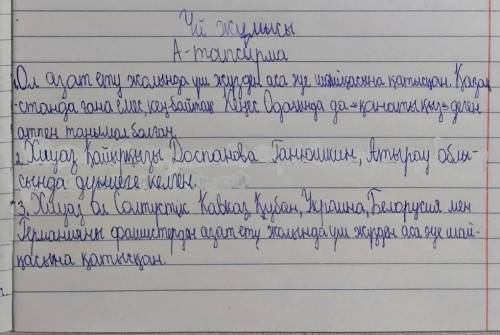 Үй жұмысы
А-тапсырма
1. Ол азат ету жолында үш жүзден аса әуе шайқасына қатысқан. Қазақ
-станда ғана емес, кең-байтақ Кеңес Одағында да «қанатты қыз» деген
атпен танымал болған.
2. Хиуаз Қайырқызы Доспанова Ганюшкин, Атырау облы-
сында дүниеге келген.
3. Хиуаз ол Солтүстік Кавказ, Кубан, Украина, Белорусия мен
Германияны фашистерден азат ету жолында үш жүзден аса әуе шай-
қасына қатысқан.